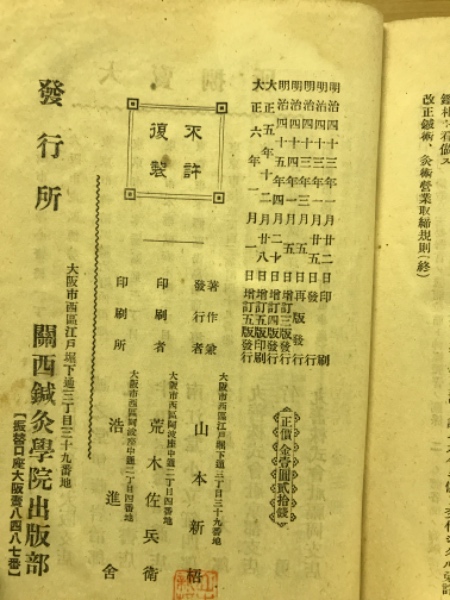 改正鍼術、灸術營業取締規則(終)
明治四十三年一月廿二日印刷
明治四十三年一月廿五日發行
明治四十三年三月五日再版發行
明治四十五年一月五日增訂三版發行
大正五年四月二十日增訂四版發行
大正五年十二月廿八日增訂五版印刷
大正六年一月一日增訂五版發行
正價金壹圓貳拾錢
不許
復製
著作兼
發行者
大阪市西區江戸堀下通三丁目三十九番地
山本新梧
印刷者
大阪市西區阿波座中通二丁目四番地
荒木佐兵衛
印刷所
大阪市西區阿波座中通二丁目四番地
浩進舍
發行所
大阪市西區江戸堀下通三丁目三十九番地
關西鍼灸學院出版部
[振替口座大阪壹八四八七番]